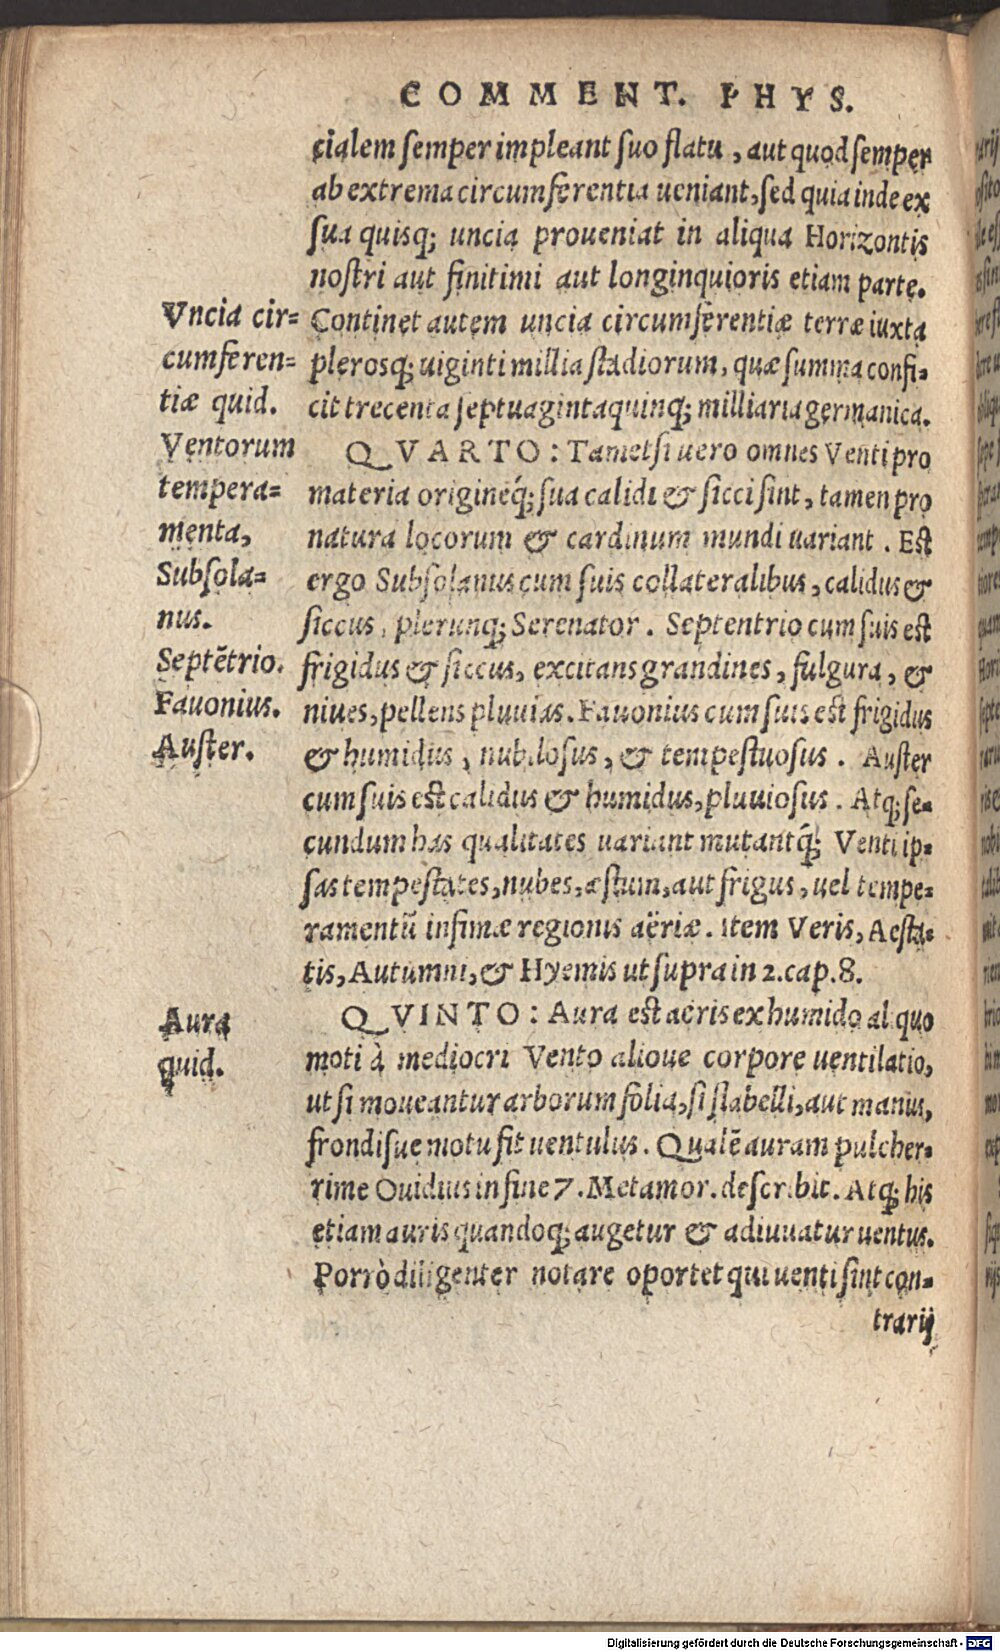 COMMENT. PHYS.
cialem semper impleant suo flatu, aut quod semper
ab extrema circumferentia ueniant, sed quia inde ex
sua quisq; uncia proueniat in aliqua Horizontis
nostri aut finitimi aut longinquioris etiam parte.
Vncia cir=
cumferen=
tiæ quid.
Continet autem uncia circumferentiæ terræ iuxta
plerosq; uiginti millia stadiorum, quæ summa confi=
cit trecenta septuagintaquinq; milliaria germanica.
Ventorum
tempera=
menta,
Subsola=
nus.
Septētrio.
Fauonius.
Auster.
QVARTO: Tametsi uero omnes Venti pro
materia origineq́; sua calidi & sicci sint, tamen pro
natura locorum & cardinum mundi uariant. Est
ergo Subsolanus cum suis collateralibus, calidus &
siccus, plerunq; Serenator. Septentrio cum suis est
frigidus & siccus, excitans grandines, fulgura, &
niues, pellens pluuias. Fauonius cum suis est frigidus
& humidus, nubilosus, & tempestuosus. Auster
cum suis est calidus & humidus, pluuiosus. Atq; se=
cundum has qualitates uariant mutantq́; Venti ip=
sas tempestates, nubes, æstum, aut frigus, uel tempe=
ramentū infimæ regionis aëriæ. item Veris, Aesta=
tis, Autumni, & Hyemis ut supra in 2. cap. 8.
Aura
quid.
QVINTO: Aura est aeris ex humido aliquo
moti à mediocri Vento alioue corpore uentilatio,
ut si moueantur arborum folia, si flabelli, aut manus,
frondisue motu fit uentulus. Qualē auram pulcher=
rime Ouidius in fine 7. Metamor. describit. Atq; his
etiam auris quandoq; augetur & adiuuatur uentus.
Porrò diligenter notare oportet qui uenti sint con=
trarij
Digitalisierung gefördert durch die Deutsche Forschungsgemeinschaft - DFG